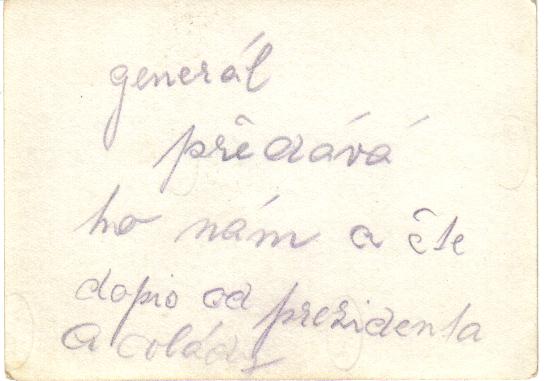 generál
předává
ho nám a čte
dopis od prezidenta
a vlády